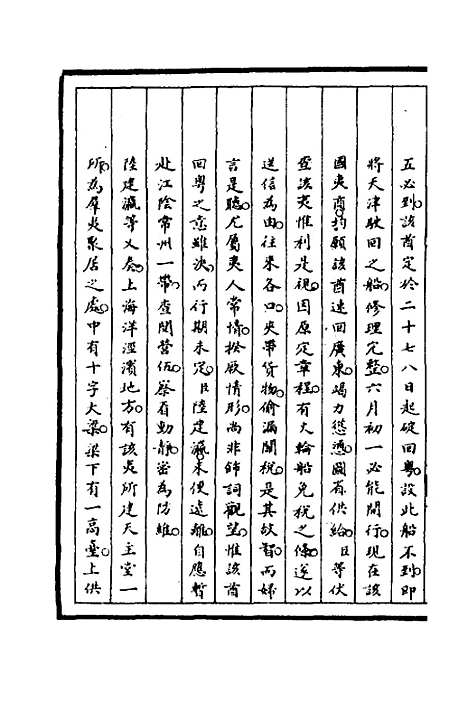 五必到該酋定於二十七八日起碇回粵設此船不到即
將天津駛回之船修理完整六月初一必能開行現在該
國夷商均願該酋速回廣東竭力慫恿圖省供給臣等伏
查該夷惟利是視因原定章程有火輪船免稅之條遂以
送信為由往來各口夾帶貨物偷漏關稅是其故智而婦
言是聽尤屬夷人常情揆厥情形尚非飾詞觀望惟該酋
回粵之意雖決而行期未定臣陸建瀛未便遠離自應暫
赴江陰常州一帶查閱營伍察看動靜密為防維
陸建瀛等又奏上海洋涇濱地方有該夷所建天主堂一
所為羣夷聚居之處中有十字大梁梁下有一高臺上供